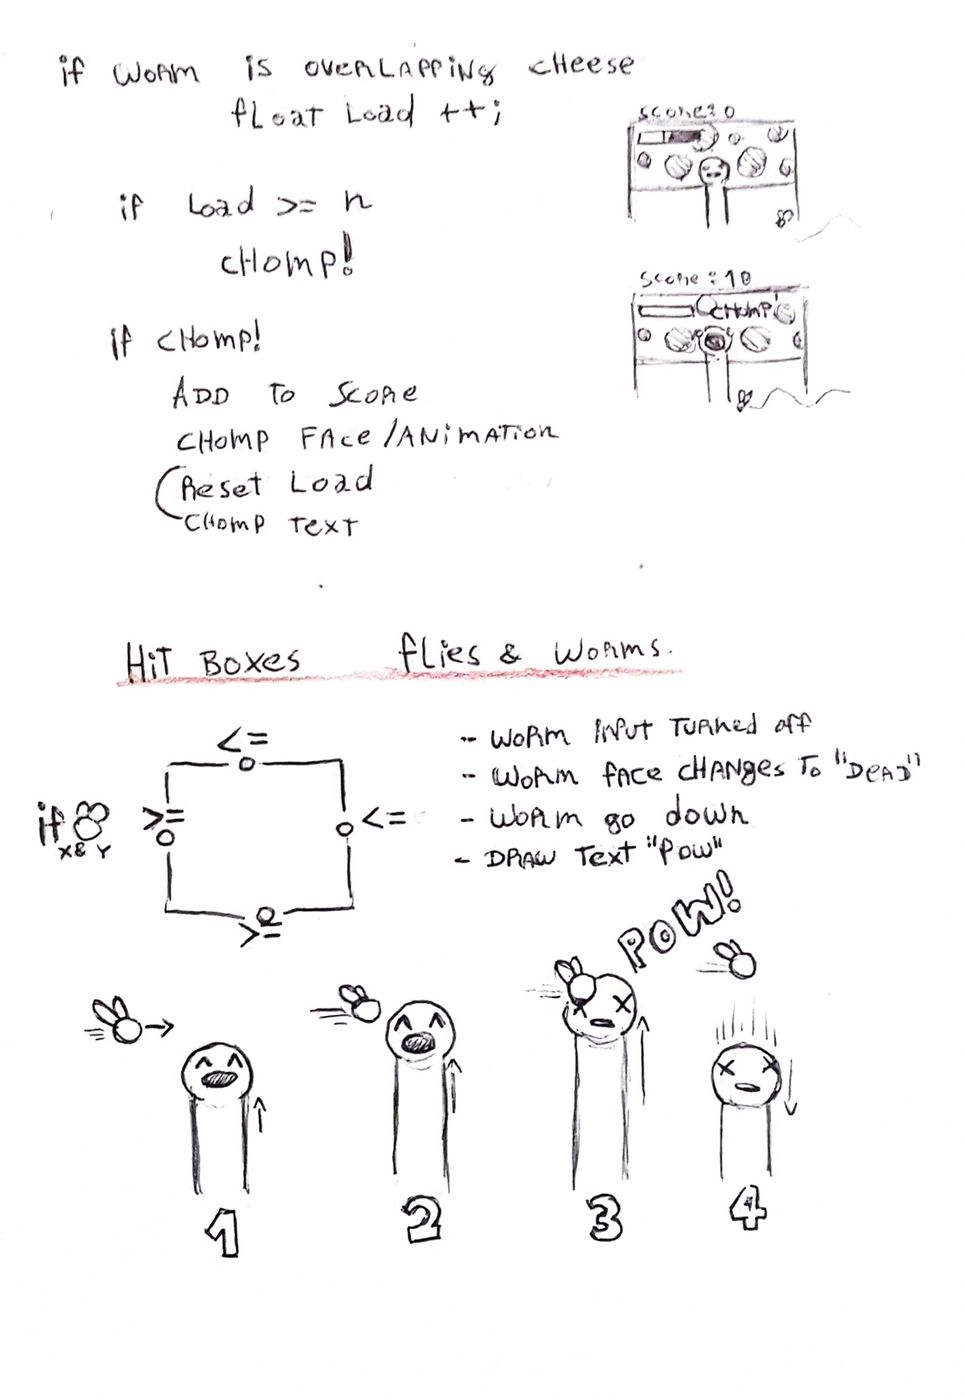 if WORM is OVERLAPPiNg CHeese
fLoat Load ++;
if Load >= n
CHOMP!
if CHOMP!
ADD TO SCORe
CHOMP FAce/ANiMATiON
Reset LOAD
CHOMP TexT
Score: 0
Score: 10
CHOMP!
HiT BOXES fLies & WORMS.
<=
if >= <=
X & Y
>=
- WORM iNPUT TURNed off
- WORM fAce CHANges TO "DEAD"
- WORM go down
- DRAW Text "POW"
POW!
1 2 3 4